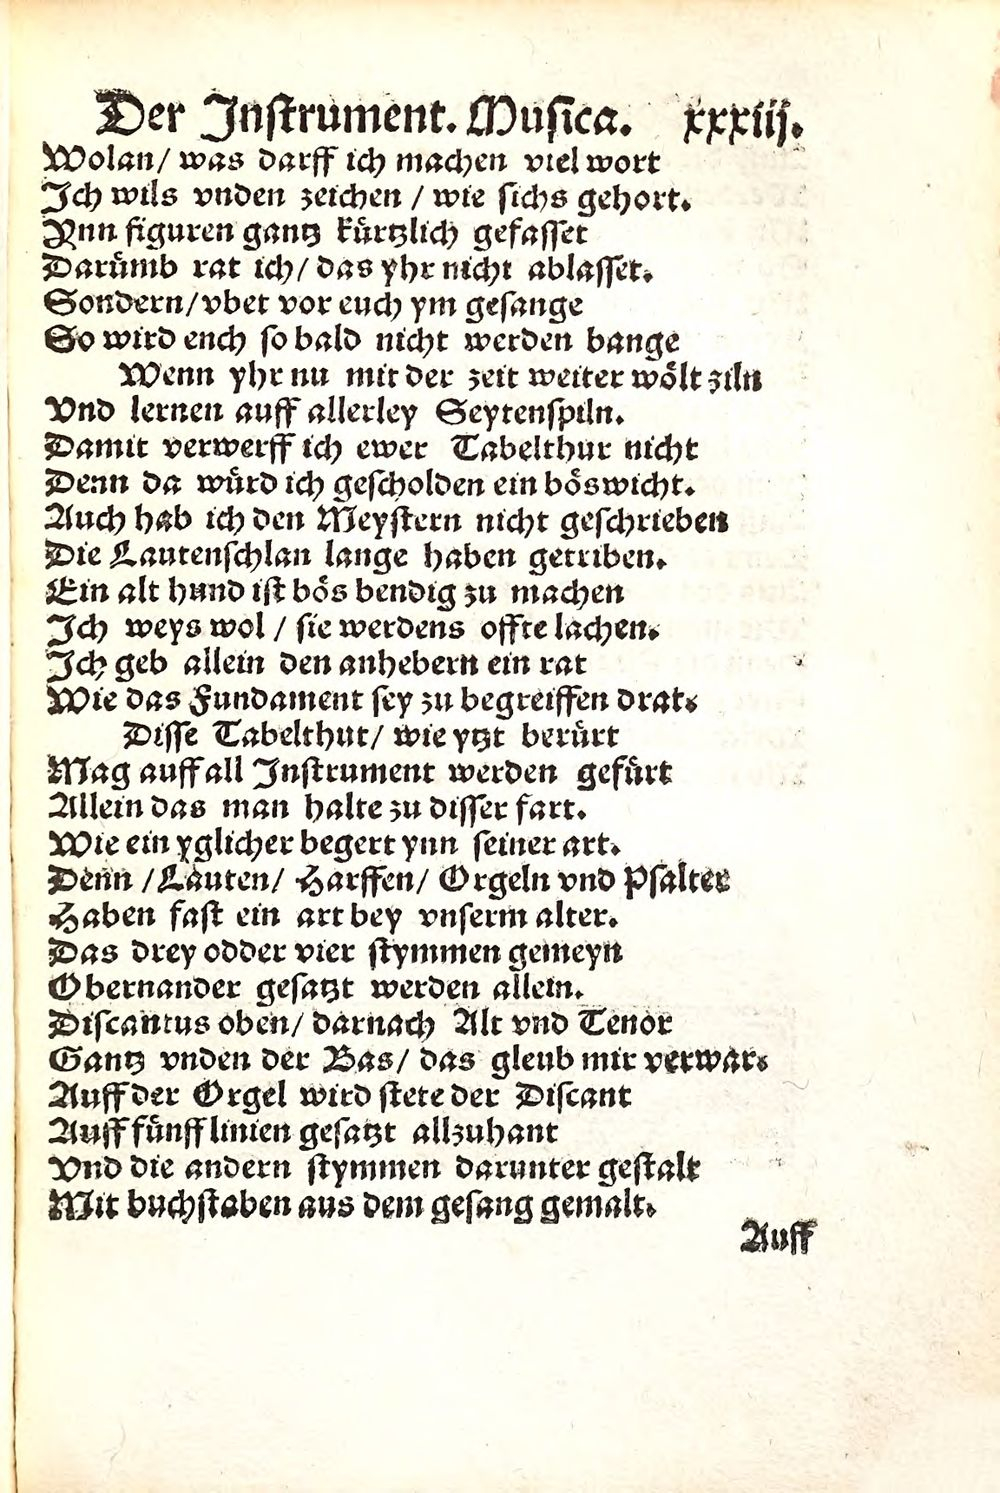 Der Instrument. Musica. xxxiij.
Wolan/ was darff ich machen viel wort
Ich wils vnden zeichen / wie sichs gehort.
Ynn figuren gantz kürtzlich gefasset
Darümb rat ich/ das yhr nicht ablasset.
Sondern/ vbet vor euch ym gesange
So wird ench so bald nicht werden bange
Wenn yhr nu mit der zeit weiter wölt ziln
Vnd lernen auff allerley Seytenspiln.
Damit verwerff ich ewer Tabelthur nicht
Denn da würd ich gescholden ein böswicht.
Auch hab ich den Meystern nicht geschrieben
Die Lautenschlan lange haben getriben.
Ein alt hund ist bös bendig zu machen
Ich weys wol / sie werdens offte lachen.
Ich geb allein den anhebern ein rat
Wie das Fundament sey zu begreiffen drat.
Disse Tabelthur/ wie ytzt berürt
Mag auff all Instrument werden gefürt
Allein das man halte zu disser fart.
Wie ein yglicher begert ynn seiner art.
Denn /Lauten/ Harffen/ Orgeln vnd Psalter
Haben fast ein art bey vnserm alter.
Das drey odder vier stymmen gemeyn
Obernander gesatzt werden allein.
Discantus oben/ darnach Alt vnd Tenor
Gantz vnden der Bas/ das gleub mir verwar.
Auff der Orgel wird stete der Discant
Auff fünff linien gesatzt allzuhant
Vnd die andern stymmen darunter gestalt
Mit buchstaben aus dem gesang gemalt.
Auff